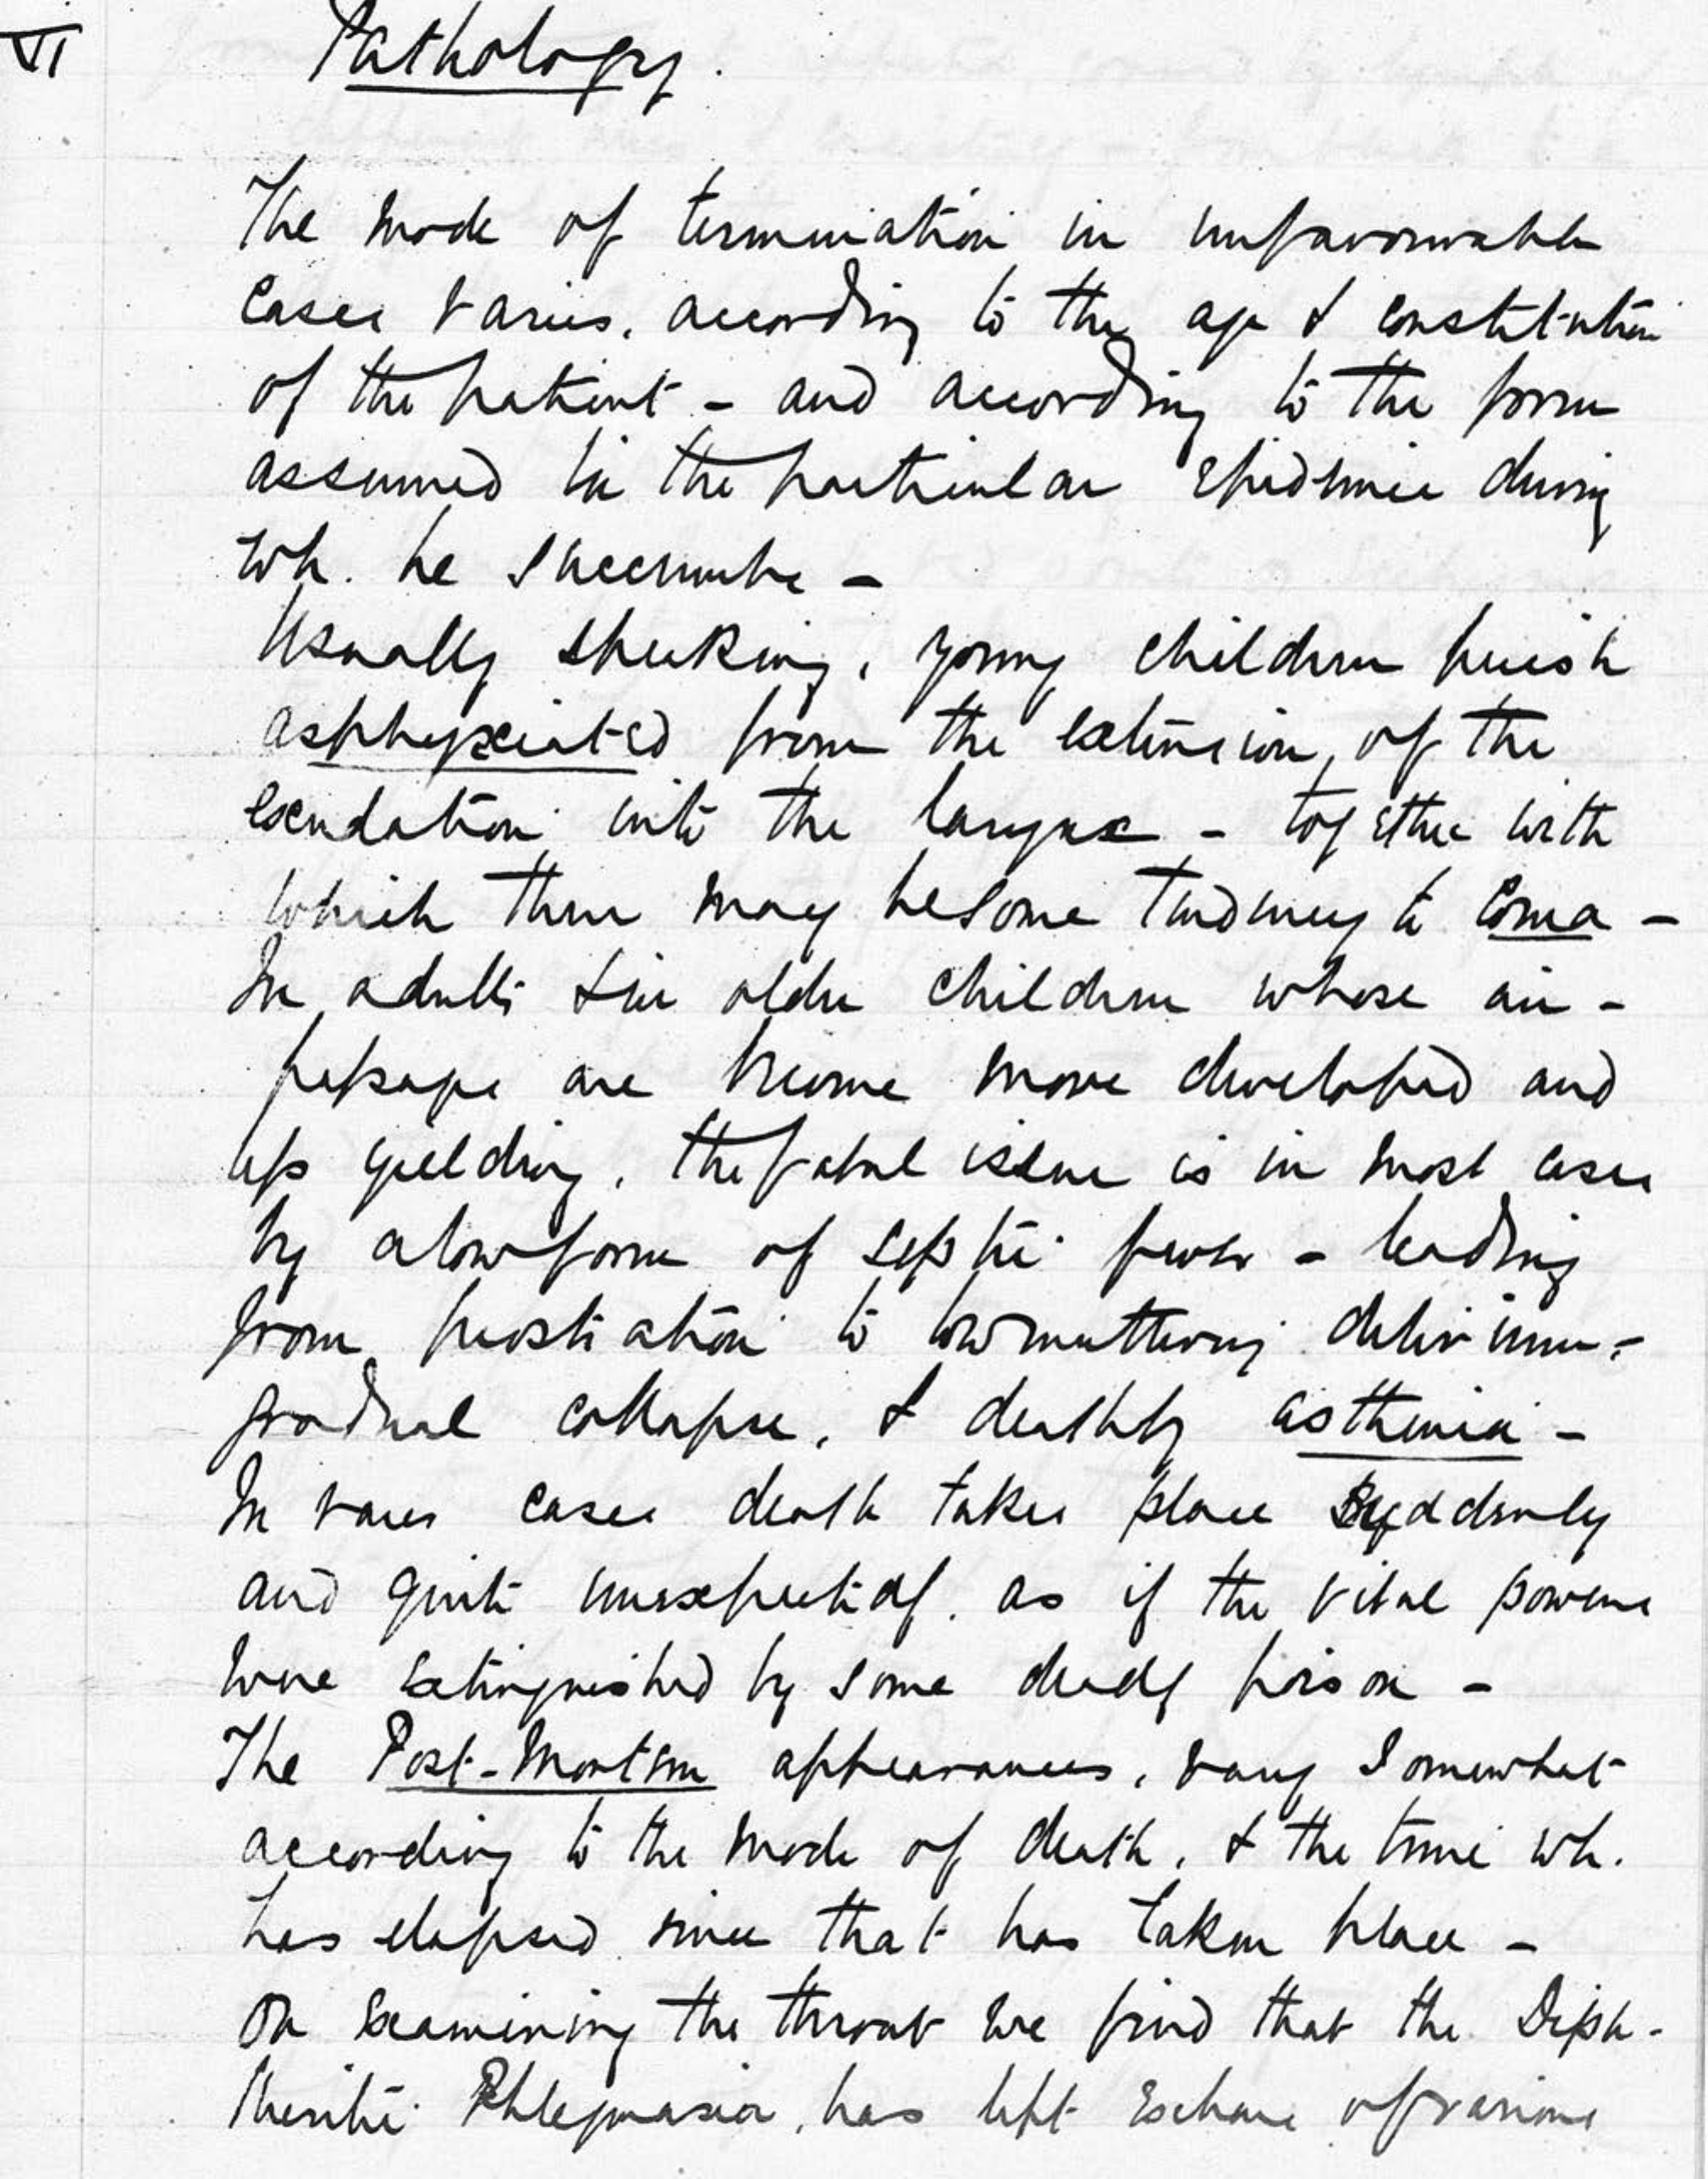 VI
Pathology.
The mode of termination in unfavourable
cases varies, according to the age & constitution
of the patient - and according to the form
assumed in the particular epidemic during
wh. he succumbs -
Usually speaking, young children perish
asphyxiated from the extension, of the
exudation into the larynx - together with
which there may be some tendency to Coma -
In adults & in older children whose air -
passages are become more developed and
less yielding, the fatal issue is in most cases
by a low form of septic fever - leading
from prostration to low muttering delirium -
gradual collapse, & death by asthenia -
In rarer cases death takes place suddenly
and quite unexpectedly, as if the vital powers
were extinguished by some deadly poison -
The Post-Mortem appearances, vary somewhat
according to the mode of death, & the time wh.
has elapsed since that has taken place -
On examining the throat we find that the Diph-
theritic Phlegmasia, has left Eschars of various